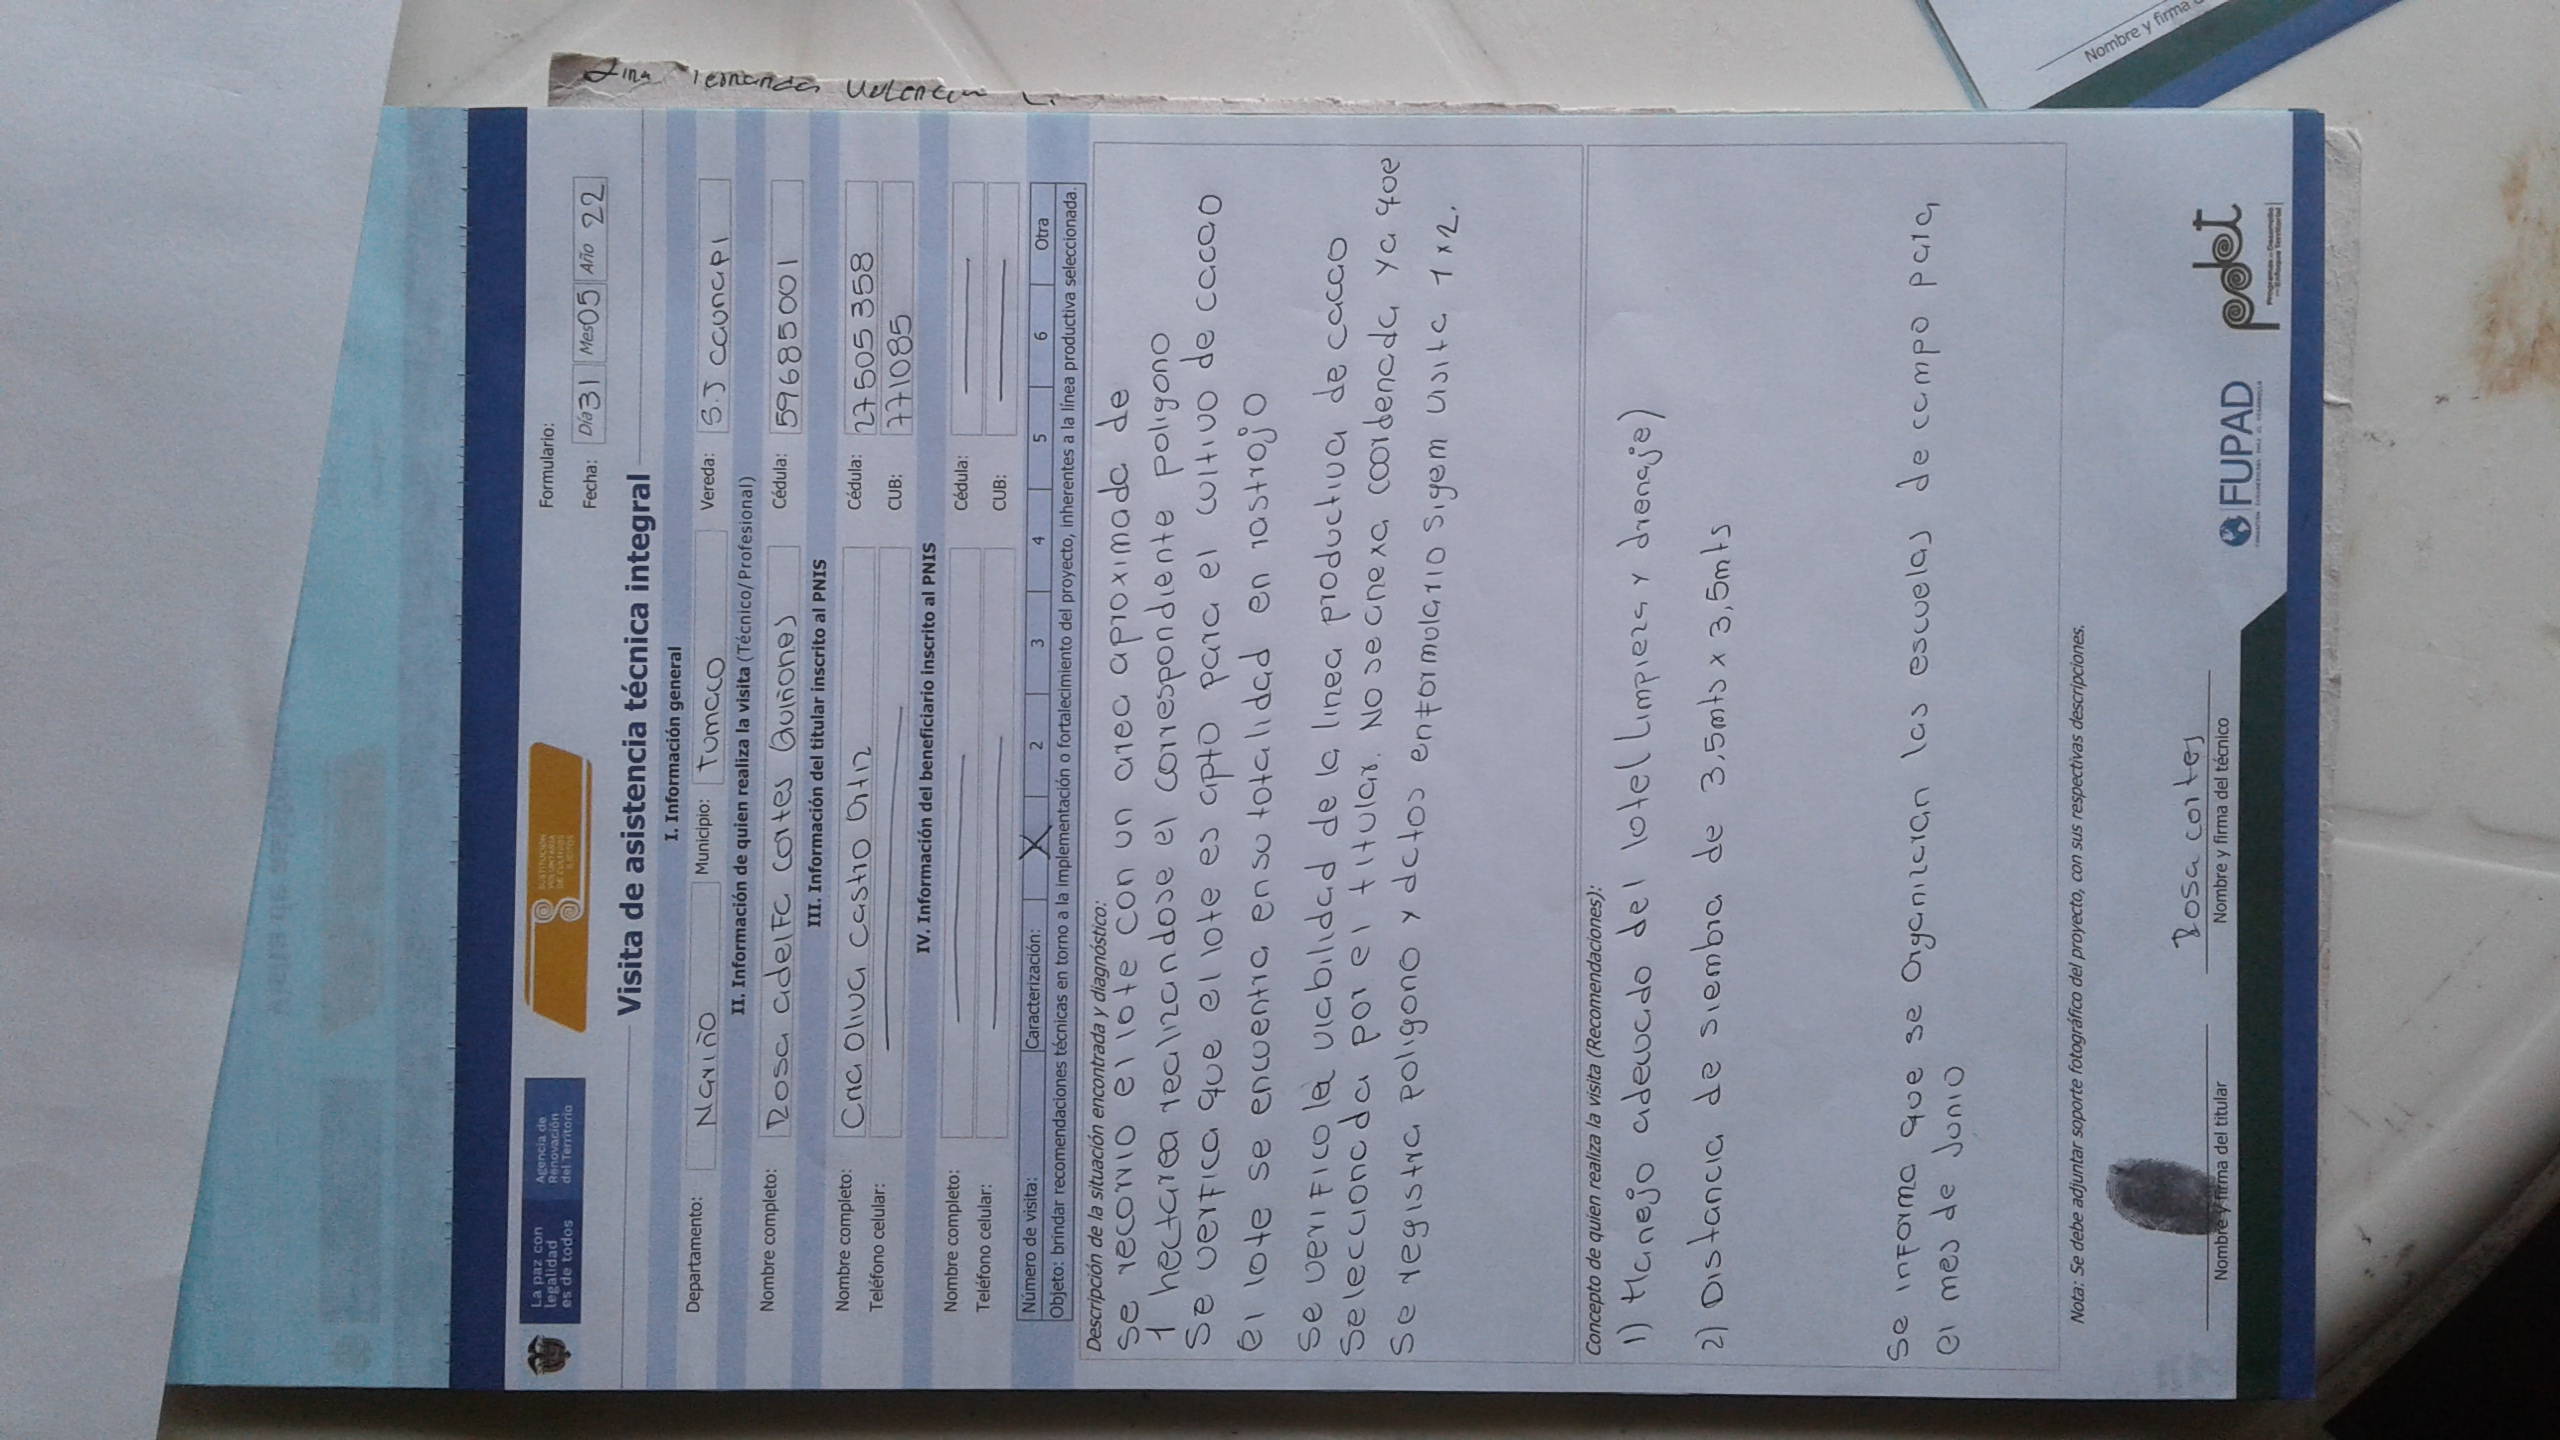 Lina Fernanda Valencia L.
La paz con
legalidad
es de todos
Agencia de
Renovación
del Territorio
SUSTITUCIÓN
VOLUNTARIA
DE CULTIVOS
ILÍCITOS
Formulario:
Fecha: Día 31 Mes 05 Año 22
Visita de asistencia técnica integral
I. Información general
Departamento: Nariño Municipio: Tumaco Vereda: S.J caunapi
II. Información de quien realiza la visita (Técnico/Profesional)
Nombre completo: Rosa adelFa cortes Quiñones Cédula: 59685001
III. Información del titular inscrito al PNIS
Nombre completo: Ana Oliva castro Ortiz Cédula: 27505358
Teléfono celular: CUB: 771085
IV. Información del beneficiario inscrito al PNIS
Nombre completo: Cédula:
Teléfono celular: CUB:
Número de visita: Caracterización: X 2 3 4 5 6 Otra
Objeto: brindar recomendaciones técnicas en torno a la implementación o fortalecimiento del proyecto, inherentes a la línea productiva seleccionada.
Descripción de la situación encontrada y diagnóstico:
Se recorrio el lote con un area aproximada de
1 hectarea realizandose el correspondiente poligono
Se verifica que el lote es apto para el cultivo de cacao
el lote se encuentra en su totalidad en rastrojo
Se verifico la viabilidad de la linea productiva de cacao
Seleccionada por el titular. No se anexa coordenada ya que
Se registra poligono y datos en formulario sigem visita 1 x2.
Concepto de quien realiza la visita (Recomendaciones):
1) Manejo adecuado del lote (Limpieza y drenaje)
2) Distancia de siembra de 3,5mts x 3,5mts
Se informa que se Organizaran las escuelas de campo para
el mes de Junio
Nota: Se debe adjuntar soporte fotográfico del proyecto, con sus respectivas descripciones.
Rosa cortes
Nombre y firma del titular
Nombre y firma del técnico
FUPAD
pdet
Programas de Desarrollo
con Enfoque Territorial
Nombre y firma